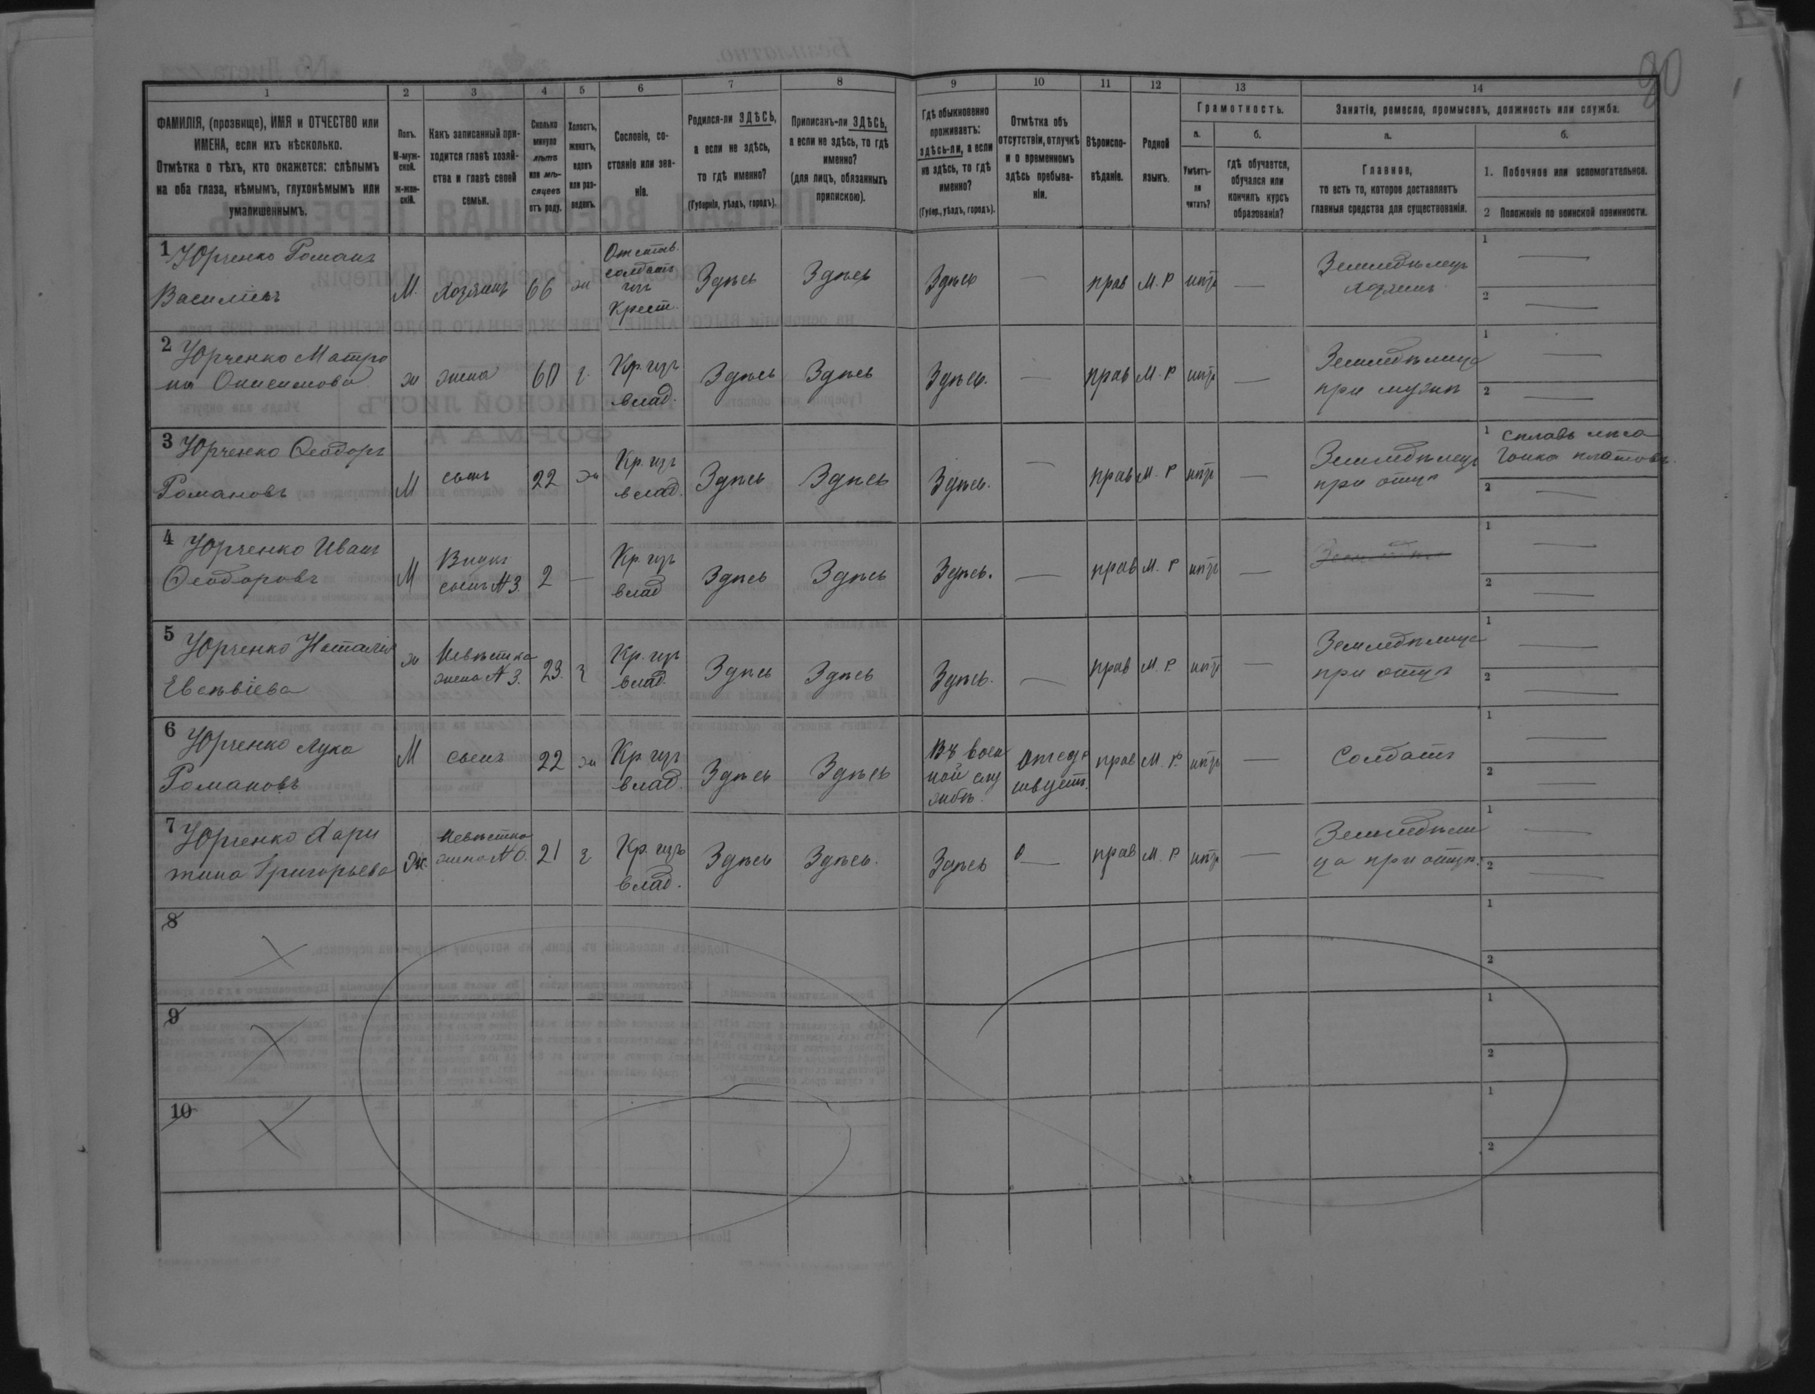 20
1 2 3 4 5 6 7 8 9 10 11 12 13 14
ФАМИЛІЯ, (прозвище), ИМЯ и ОТЧЕСТВО или ИМЕНА, если ихъ нѣсколько.
Отмѣтка о тѣхъ, кто окажется: слѣпымъ на оба глаза, нѣмымъ, глухонѣмымъ или умалишеннымъ.
Полъ.
М-мужской.
ж-женскій.
Какъ записанный приходится главѣ хозяйства и главѣ своей семьи.
Сколько минуло лѣтъ или мѣсяцевъ отъ роду.
Холостъ, женатъ, вдовъ или разведенъ.
Сословіе, состояніе или званіе.
Родился-ли ЗДѢСЬ, а если не здѣсь, то гдѣ именно?
(Губернія, уѣздъ, городъ).
Приписанъ-ли ЗДѢСЬ, а если не здѣсь, то гдѣ именно?
(для лицъ, обязанныхъ припискою).
Гдѣ обыкновенно проживаетъ: здѣсь-ли, а если не здѣсь, то гдѣ именно?
(Губер., уѣздъ, городъ).
Отмѣтка объ отсутствіи, отлучкѣ и о временномъ здѣсь пребываніи.
Вѣроисповѣданіе.
Родной языкъ.
Грамотность.
а.
Умѣетъ-ли читать?
б.
гдѣ обучается, обучался или кончилъ курсъ образованія?
Занятія, ремесло, промыселъ, должность или служба.
а.
Главное,
то есть то, которое доставляетъ главныя средства для существованія.
б.
1. Побочное или вспомогательное.
2 Положеніе по воинской повинности.
1 Юрченко Романъ
Васильевъ
М. хозяинъ 66 ж
Отстав.
солдатъ
изъ
Крест.
Здѣсь Здѣсь Здѣсь — прав М. Р нѣтъ —
Земледѣлецъ
хозяинъ
1 —
2 —
2 Юрченко Матро
на Онисимова
ж жена 60 з.
Кр. изъ
влад.
Здѣсь Здѣсь Здѣсь. — прав М. Р нѣтъ —
Земледѣлица
при мужѣ
1 —
2 —
3 Юрченко Ѳеодоръ
Романовъ
М сынъ 22 ж
Кр. изъ
влад.
Здѣсь Здѣсь Здѣсь. — прав М. Р нѣтъ
Земледѣлецъ
при отцѣ
1 Сплавъ лѣса
Гонка плотовъ.
2 —
4 Юрченко Иванъ
Ѳеодоровъ
М
Внукъ
сынъ №3. 2 —
Кр. изъ
влад
Здѣсь Здѣсь Здѣсь. — прав М. Р нѣтъ —
1 —
2 —
5 Юрченко Наталія
Евсѣвіева
ж
Невѣстка
жена №3. 23. з
Кр. изъ
влад.
Здѣсь Здѣсь Здѣсь. — прав М. Р. нѣтъ —
Земледѣлица
при отцѣ
1 —
2 —
6 Юрченко Лука
Романовъ
М сынъ 22 ж
Кр. изъ
влад.
Здѣсь Здѣсь
Въ воен
ной слу
жбѣ.
Отсут
ствуетъ.
прав М. Р. нѣтъ — Солдатъ
1 —
2 —
7 Юрченко Хари
тина Григорьева
Ж.
Невѣстка
жена №6. 21 з
Кр. изъ
влад.
Здѣсь Здѣсь. Здѣсь — прав М. Р нѣтъ —
Земледѣли
ца при отцѣ.
1 —
2 —
8
1
2
9
1
2
10
1
2